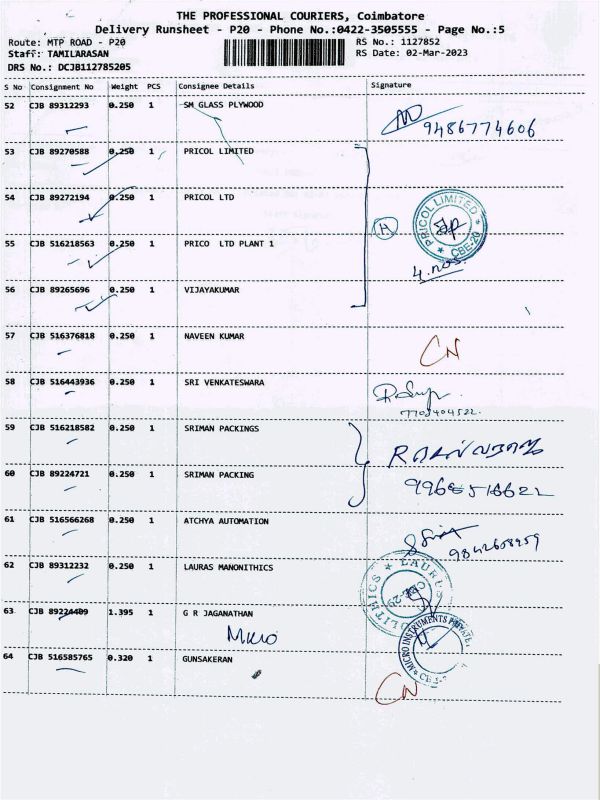 THE PROFESSIONAL COURIERS, Coimbatore
Delivery Runsheet - P20 - Phone No.:0422-3505555 - Page No.:5
Route: MTP ROAD - P20
Staff: TAMILARASAN
DRS No.: DCJB112785205
RS No.: 1127852
RS Date: 02-Mar-2023
S No Consignment No Weight PCS Consignee Details Signature
52 CJB 89312293 0.250 1 SM GLASS PLYWOOD
9486774606
53 CJB 89270588 0.250 1 PRICOL LIMITED
54 CJB 89272194 0.250 1 PRICOL LTD
PRICOL LIMITED
CBE-20
55 CJB 516218563 0.250 1 PRICO LTD PLANT 1
4. nos.
56 CJB 89265696 0.250 1 VIJAYAKUMAR
57 CJB 516376818 0.250 1 NAVEEN KUMAR
CN
58 CJB 516443936 0.250 1 SRI VENKATESWARA
59 CJB 516218582 0.250 1 SRIMAN PACKINGS
60 CJB 89224721 0.250 1 SRIMAN PACKING
61 CJB 516566268 0.250 1 ATCHYA AUTOMATION
9842658959
62 CJB 89312232 0.250 1 LAURAS MANONITHICS
63 CJB 89224409 1.395 1 G R JAGANATHAN
Micro
MICRO INSTRUMENTS PRIVATE
64 CJB 516585765 0.320 1 GUNSAKERAN
CN